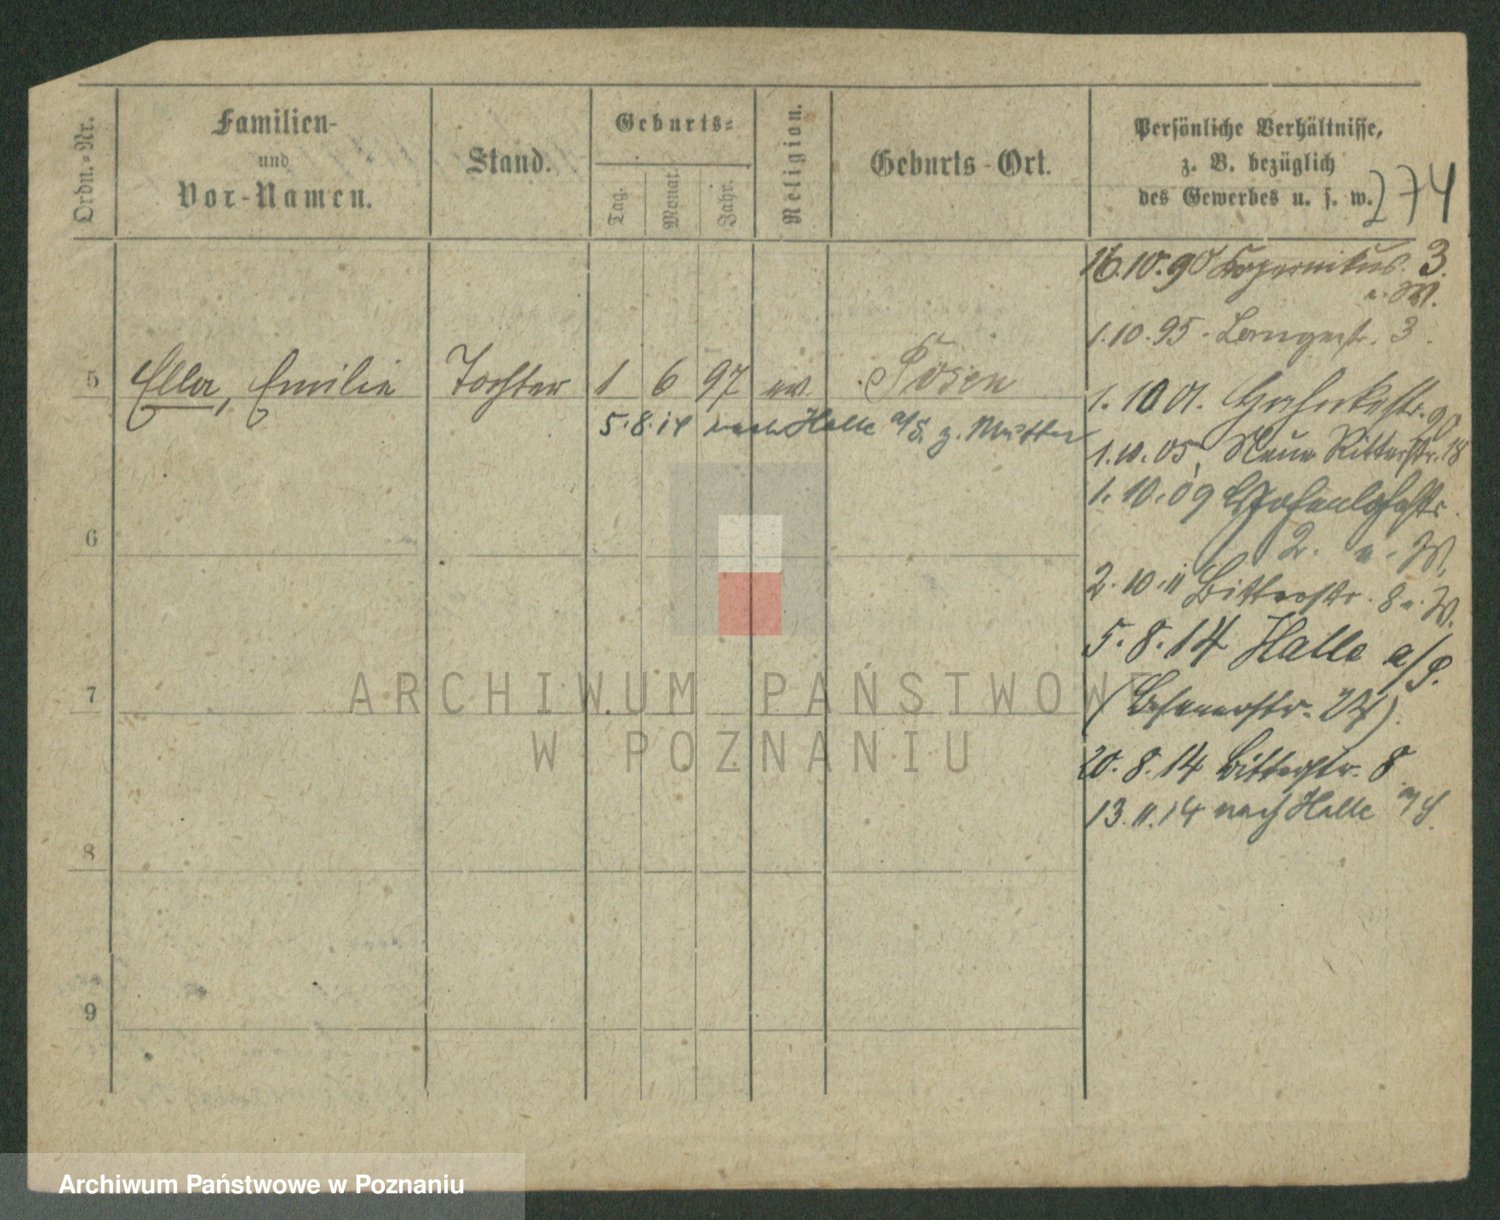 Ordn.-Nr.
Familien-
und
Vor-Namen.
Stand.
Geburts-
Tag.
Monat.
Jahr.
Religion.
Geburts-Ort.
Persönliche Verhältnisse,
z. B. bezüglich
des Gewerbes u. s. w.
274
16.10.90 Kopernikus. 3.
u. W.
1.10.95 - Langestr. 3.
5 Ella, Emilie Tochter 1 6 97 ev. Posen
5.8.14 nach Halle a/S. z. Mutter
1.10 01.
1.10.05, Neue Ritterstr. 18
1.10.09 Hohenlohestr.
2. u. W.
6
2.10.11 Bitterstr. 8 u. W.
5.8.14 Halle a/S.
7
20.8.14 Bitterstr. 8
13.11.14 nach Halle a/S.
8
9
ARCHIWUM PAŃSTWOWE
W POZNANIU
Archiwum Państwowe w Poznaniu